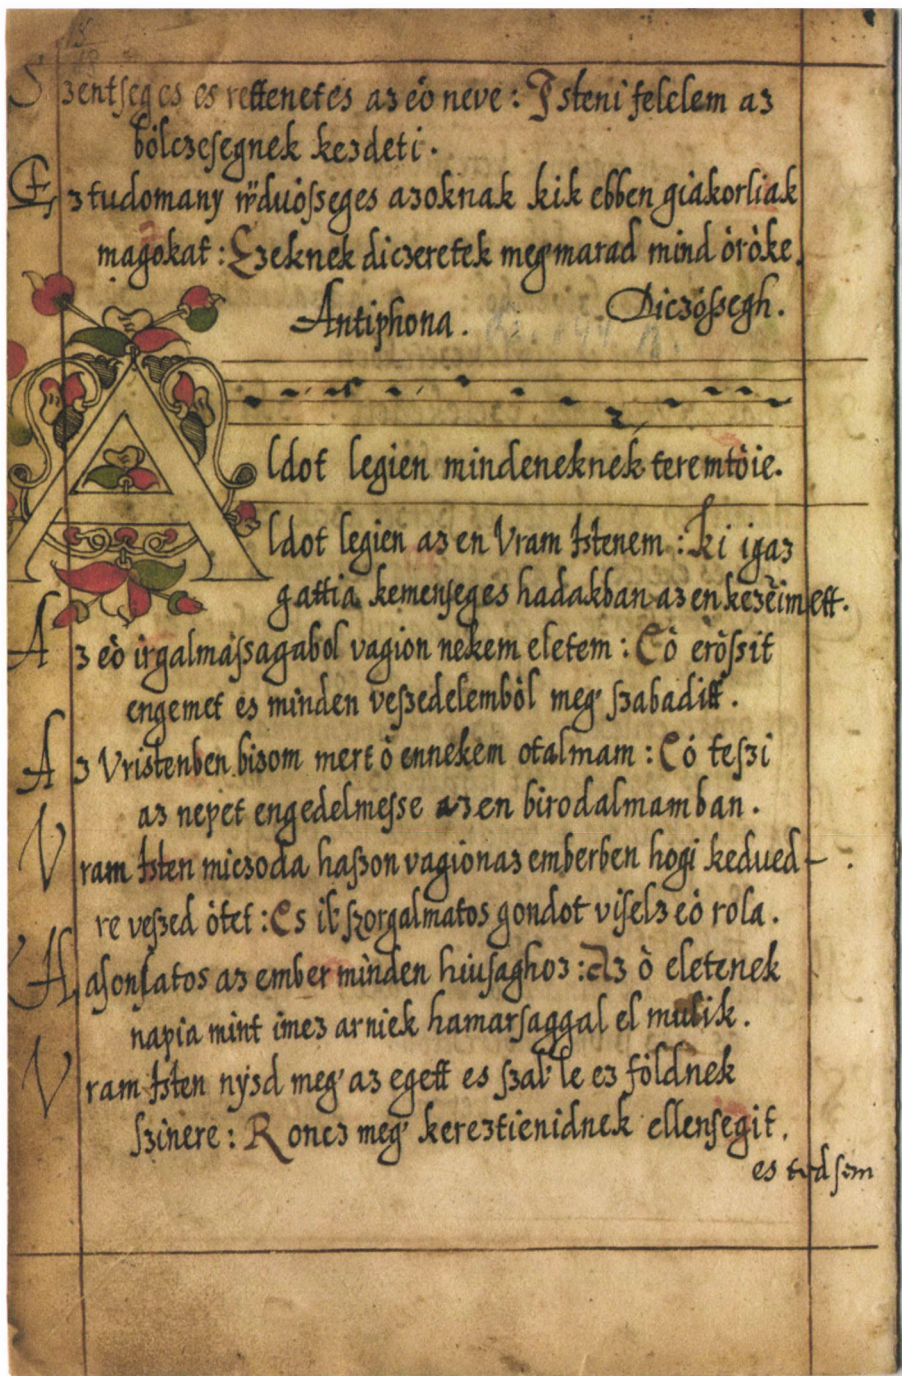 Szentseges es rettenetes az eö neve : Isteni felelem az
bölczesegnek kezdeti .
Ez tudomany üduösseges azoknak kik ebben giakorliak
magokat : Ezeknek diczeretek megmarad mind òròke .
Antiphona . Diczòssegh .
Aldot legien mindeneknek teremtöie .
Aldot legien az en Vram Istenem : Ki igaz
gattia kemenseges hadakban az en kezeimett .
Az eò irgalmassagabol vagion nekem eletem : Eò eròssit
engemet es minden veszedelemböl meg szabaditt .
Az Vristenben bizom mert ò ennekem otalmam : Eò teszi
az nepet engedelmesse az en birodalmamban .
Vram Isten miczoda haszon vagion az emberben hogi kedued-
re veszed òtet : Es ily szorgalmatos gondot viselz eò rola .
Hasonlatos az ember minden hiusaghoz : Az ò eletenek
napia mint imez arniek hamarsaggal el mulik .
Vram Isten nyzd meg az egett es szal le ez földnek
szinere : Roncz meg kereztienidnek ellensegit .
es tudsem